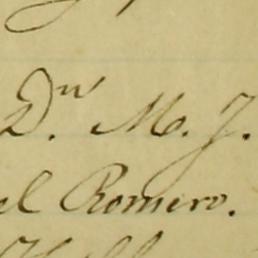 Dn. M. J.
el Romero.